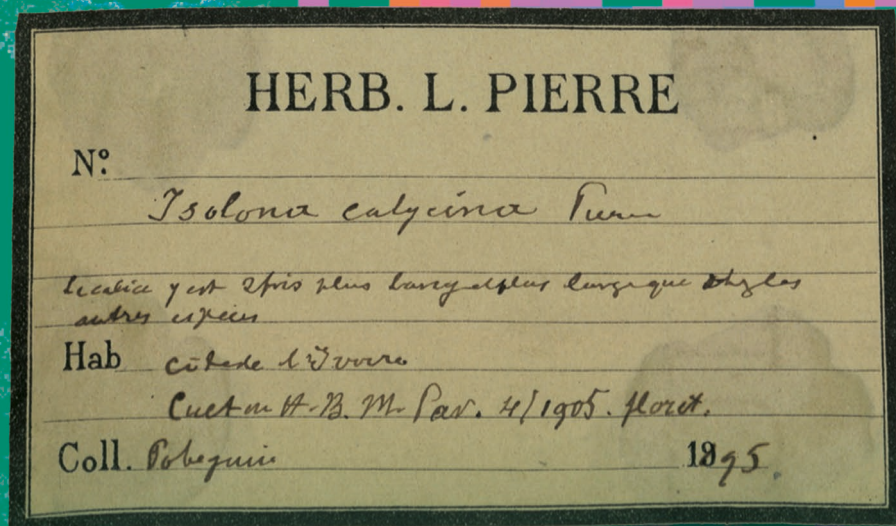 HERB. L. PIERRE
Nº
Isolona calycina Pierre
Le calice y est 2 fois plus long et plus large que chez les
autres espèces
Hab Côte de l'Ivoire
Cult en H. B. M. Par. 4/1905. floret.
Coll. Pobeguin 1895